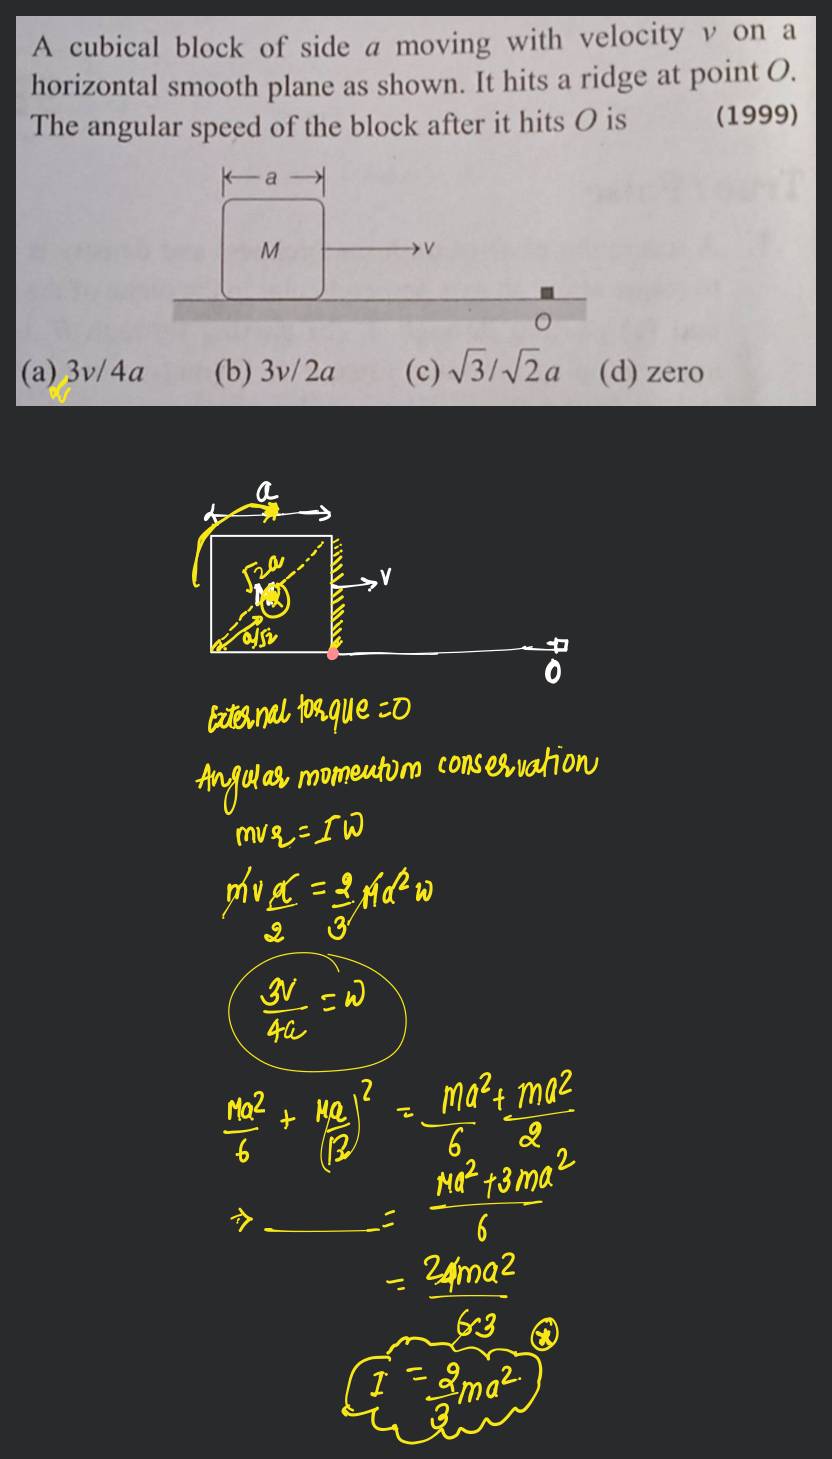 A cubical block of side a moving with velocity v on a
horizontal smooth plane as shown. It hits a ridge at point O.
The angular speed of the block after it hits O is (1999)
a
M
v
O
(a) 3v/4a (b) 3v/2a (c) √3/√2a (d) zero
a
√2a
M
v
a/√2
O
External torque = 0
Angular momentum conservation
mvr = Iω
mv a/2 = 2/3 Ma² ω
3v/4a = ω
Ma²/6 + M(a/√2)² = Ma²/6 + ma²/2
⇒ = Ma² + 3ma²/6
= 4ma²/6 2 3
I = 2/3 ma²